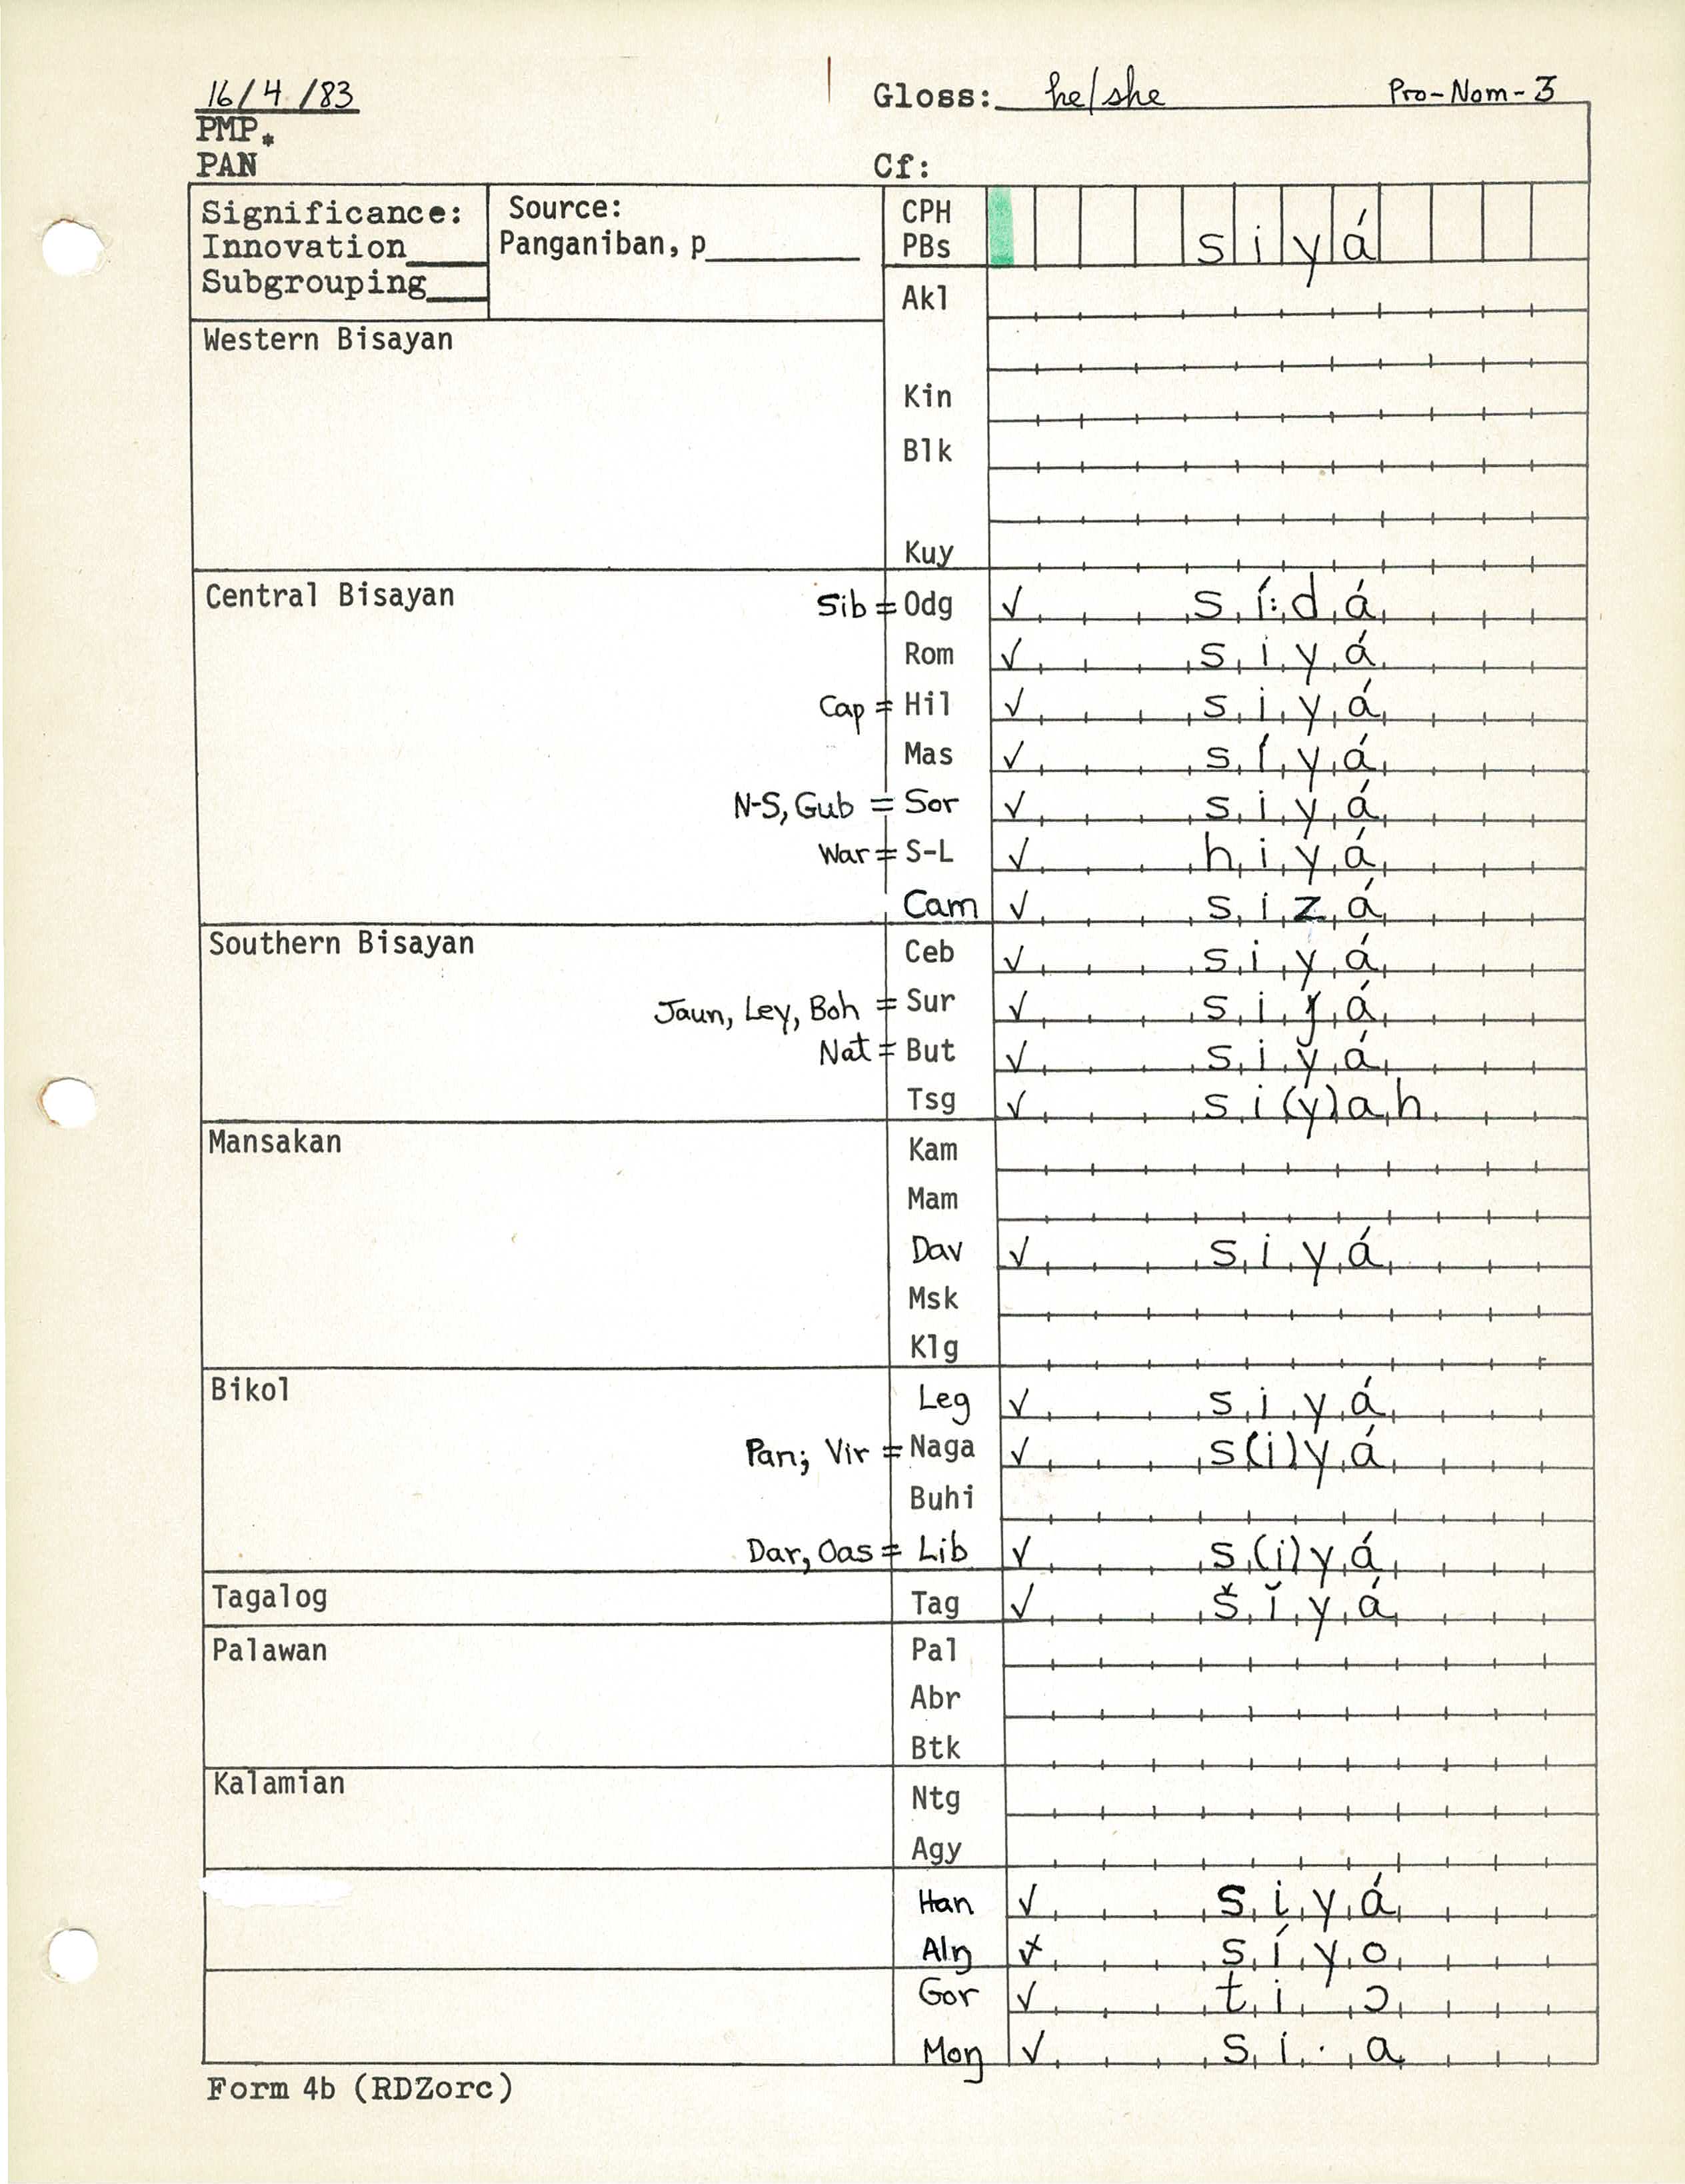 16/4/83 Gloss: he/she Pro-Nom-3
PMP*
PAN Cf:
Significance: Source: CPH
Innovation____ Panganiban, p________ PBs siyá
Subgrouping___
Akl
Western Bisayan
Kin
Blk
Kuy
Central Bisayan Sib = Odg ✓ sí:dá
Rom ✓ siyá
Cap = Hil ✓ siyá
Mas ✓ síyá
N-S, Gub = Sor ✓ siyá
War = S-L ✓ hiyá
Cam ✓ sizá
Southern Bisayan Ceb ✓ siyá
Jaun, Ley, Boh = Sur ✓ siɟá
Nat = But ✓ siyá
Tsg ✓ si(y)ah
Mansakan Kam
Mam
Dav ✓ siyá
Msk
Klg
Bikol Leg ✓ siyá
Pan; Vir = Naga ✓ s(i)yá
Buhi
Dar, Oas = Lib ✓ s(i)yá
Tagalog Tag ✓ šĭyá
Palawan Pal
Abr
Btk
Kalamian Ntg
Agy
Han ✓ siyá
Alŋ ✓ síyo
Gor ✓ ti ɔ
Moŋ ✓ si·a
Form 4b (RDZorc)